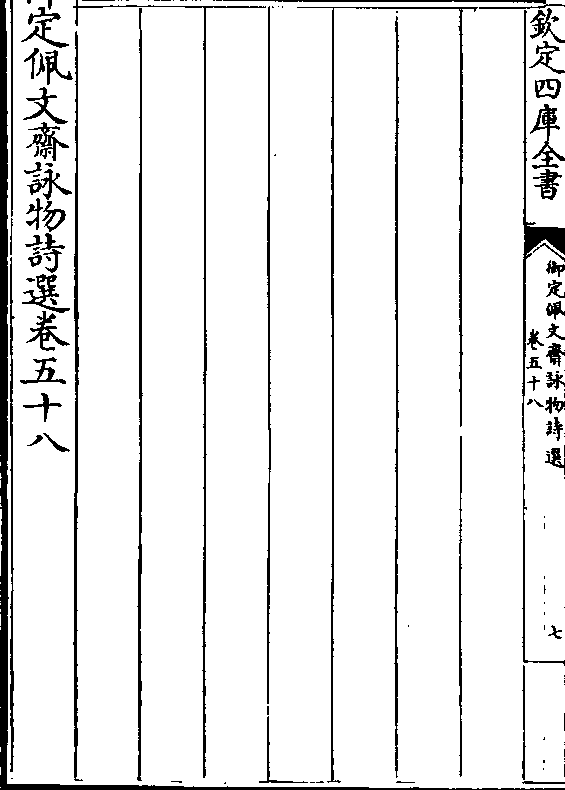 欽定四庫全書
御定佩文齋詠物詩選
卷五十八
七
御定佩文齋詠物詩選卷五十八